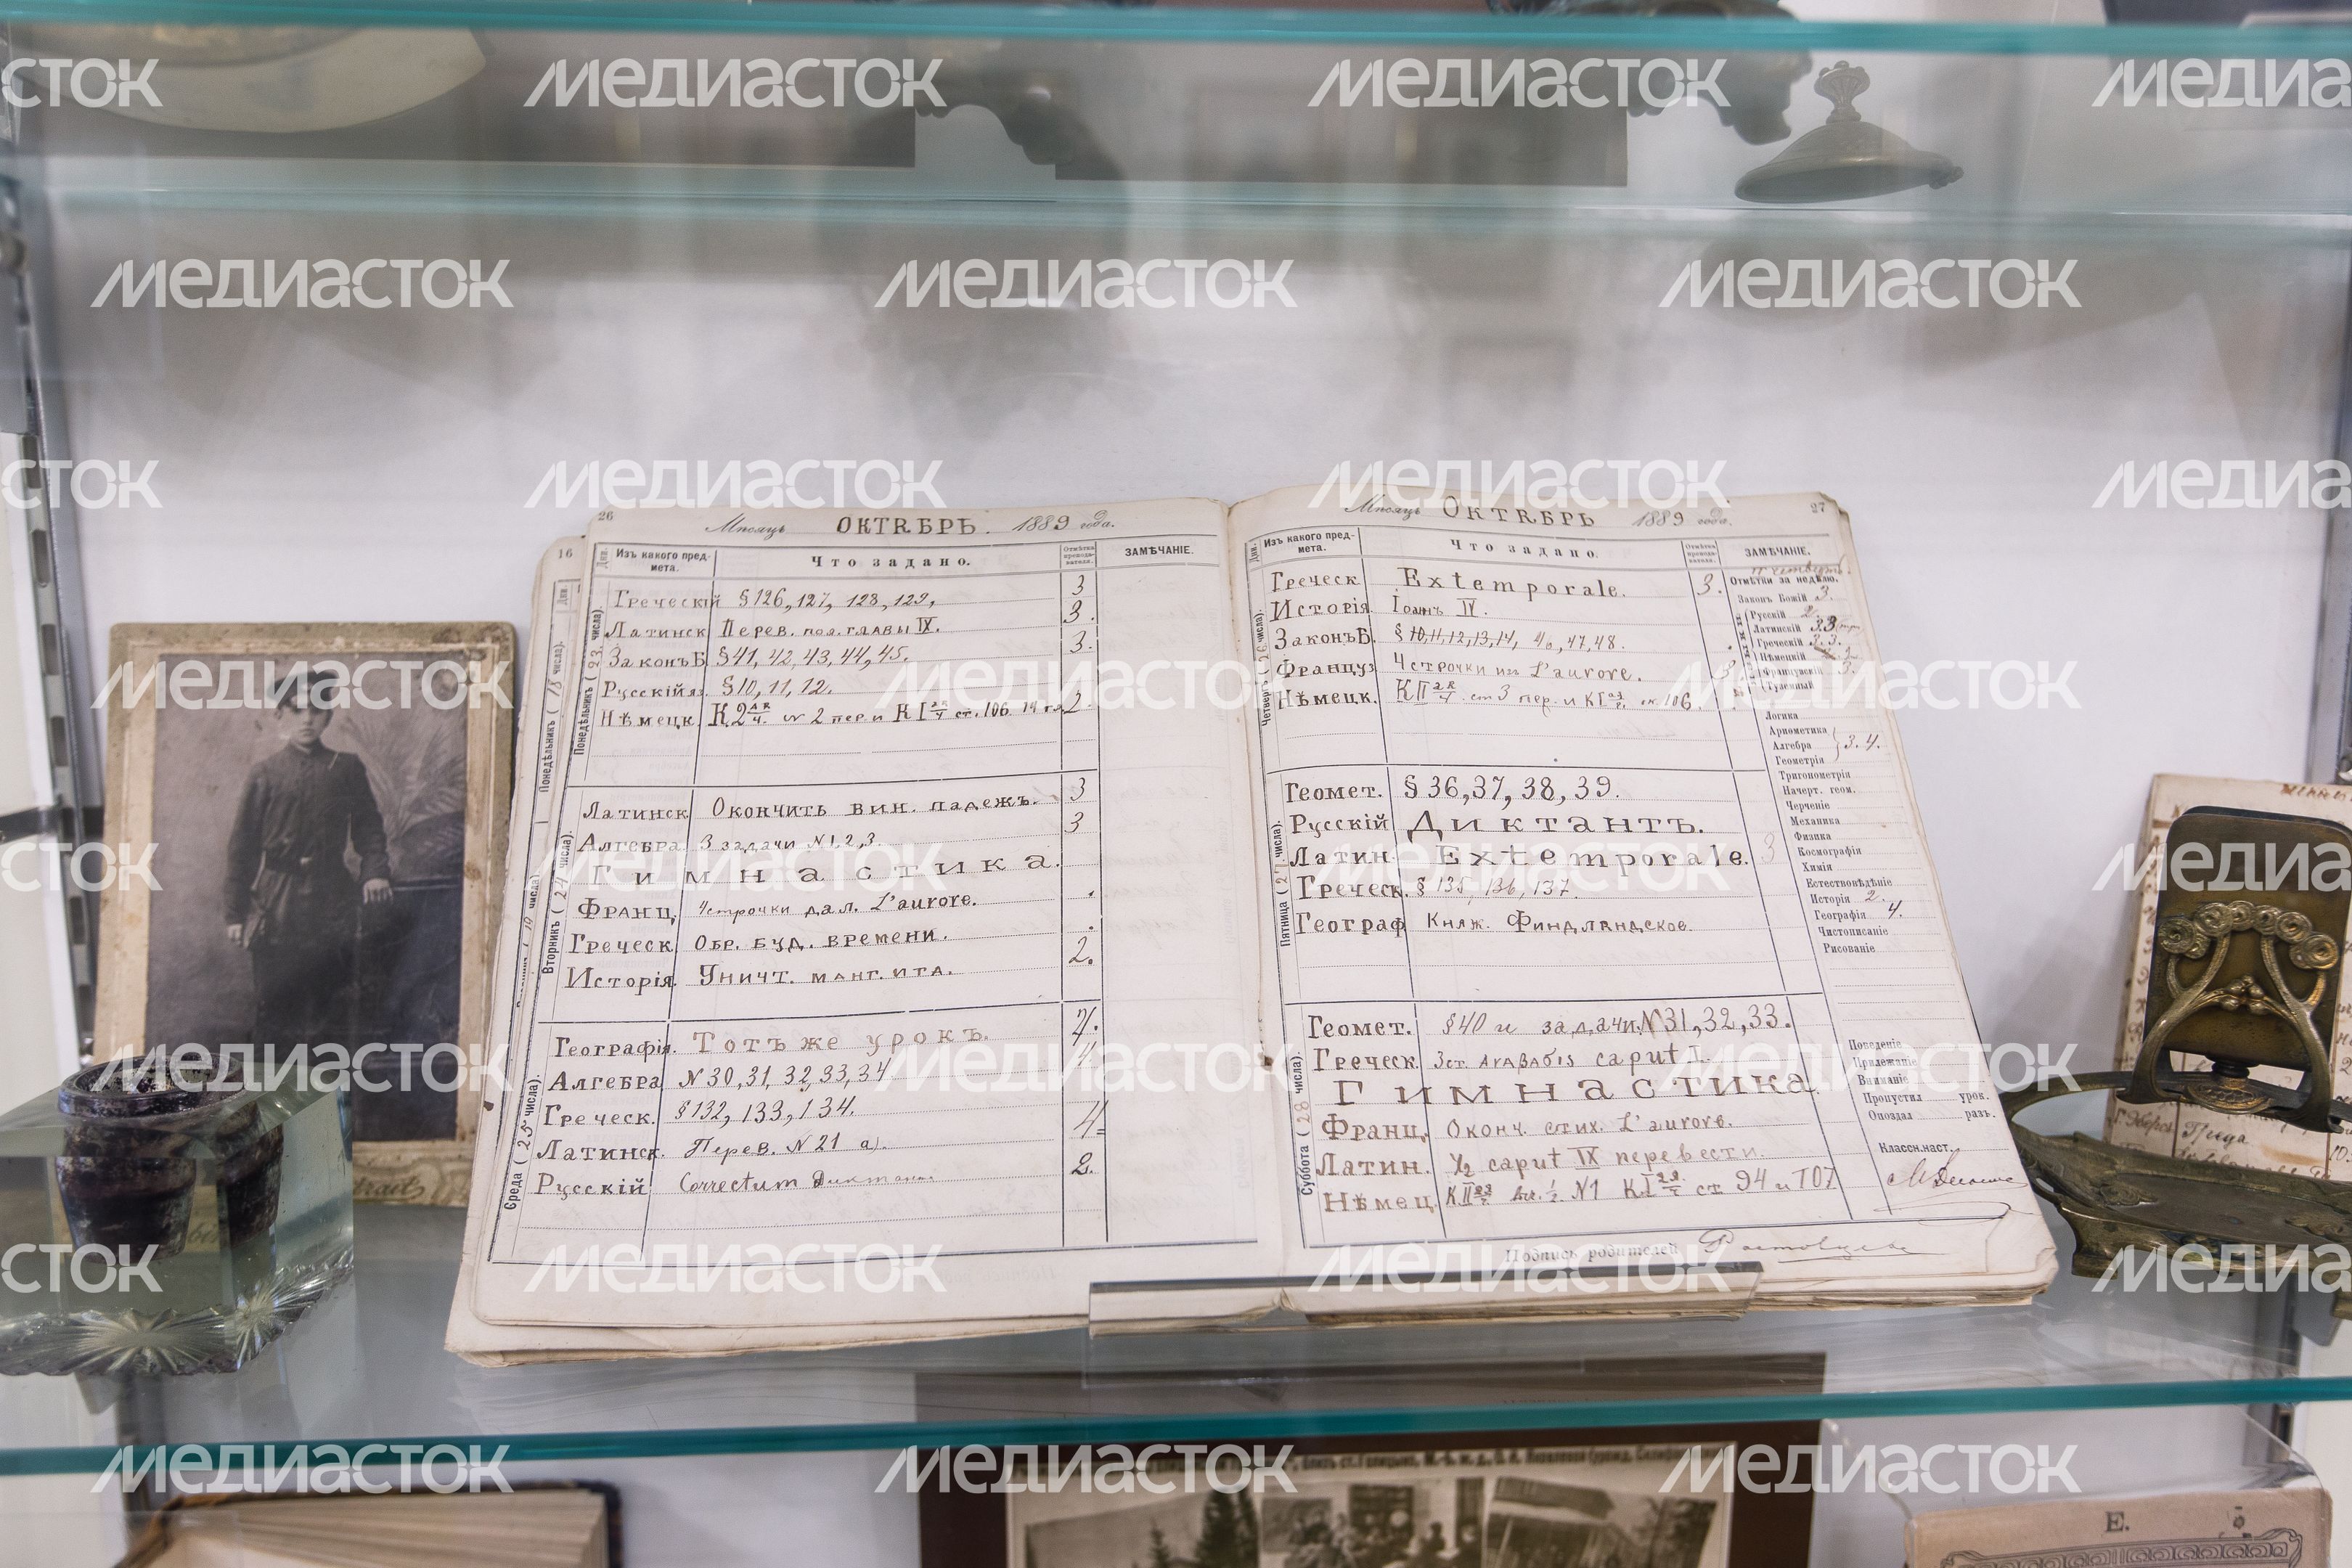 МЕДИАСТОК
26
Мѣсяцъ ОКТЯБРЬ. 1889 года.
Дни.
Изъ какого пред-
мета.
Что задано.
Отмѣтка
препода-
вателя.
ЗАМѢЧАНІЕ.
Понедѣльникъ (23 числа).
Греческій §126, 127, 128, 129. 3
Латинск Перев. пол. главы IX. 3.
ЗаконъБ §41, 42, 43, 44, 45. 3.
Русскійяз. §10, 11, 12.
Нѣмецк. 2.
Вторникъ (24 числа).
Латинск Окончить вин. падежъ. 3
Алгебра 3 задачи №1,2,3. 3
Гимнастика.
Франц. 4строчки дал. L'aurore.
Греческ. Обр. буд. времени.
Исторія. Уничт. манг. ига. 2.
Среда (25 числа).
Географія. Тотъ же урокъ. 4.
Алгебра N 30, 31, 32, 33, 34 4.
Греческ. §132, 133, 134.
Латинск. Перев. N 21 а). 4=
Русскій Correctum диктанта. 2.
16
Понедѣльникъ
27
Мѣсяцъ ОКТЯБРЬ 1889 года.
Дни.
Изъ какого пред-
мета.
Что задано.
Отмѣтка
препода-
вателя.
ЗАМѢЧАНІЕ.
Четвергъ (26 числа).
Греческ Extemporale. 3.
Исторія. Іоанъ IV.
ЗаконъБ. § 10,11,12,13,14, 46, 47, 48.
Француз 4 строчки из L'aurore. 3
Нѣмецк.
Пятница (27 числа).
Геомет. § 36, 37, 38, 39.
Русскій Диктантъ.
Латин. Extemporale. 3
Греческ. § 135, 136, 137.
Географ Княж. Финдляндское.
Суббота (28 числа).
Геомет. §40 и задачи N31, 32, 33.
Греческ. caput I.
Гимнастика
Франц. Оконч. стих. L'aurore.
Латин. ½ caput IX перевести.
Нѣмец.
Отмѣтки за недѣлю.
Законъ Божій 3.
Русскій 2.
Латинскій 3.3
Греческій 3.3.
Нѣмецкій
Французскій 3.
Туземный
Логика
Ариѳметика
Алгебра 3.4.
Геометрія
Тригонометрія
Начерт. геом.
Черченіе
Механика
Физика
Космографія
Химія
Естествовѣдѣніе
Исторія 2.
Географія 4.
Чистописаніе
Рисованіе
Поведеніе
Прилежаніе
Вниманіе
Пропустил урок.
Опоздал разъ.
Классн.наст.
Подпись родителей